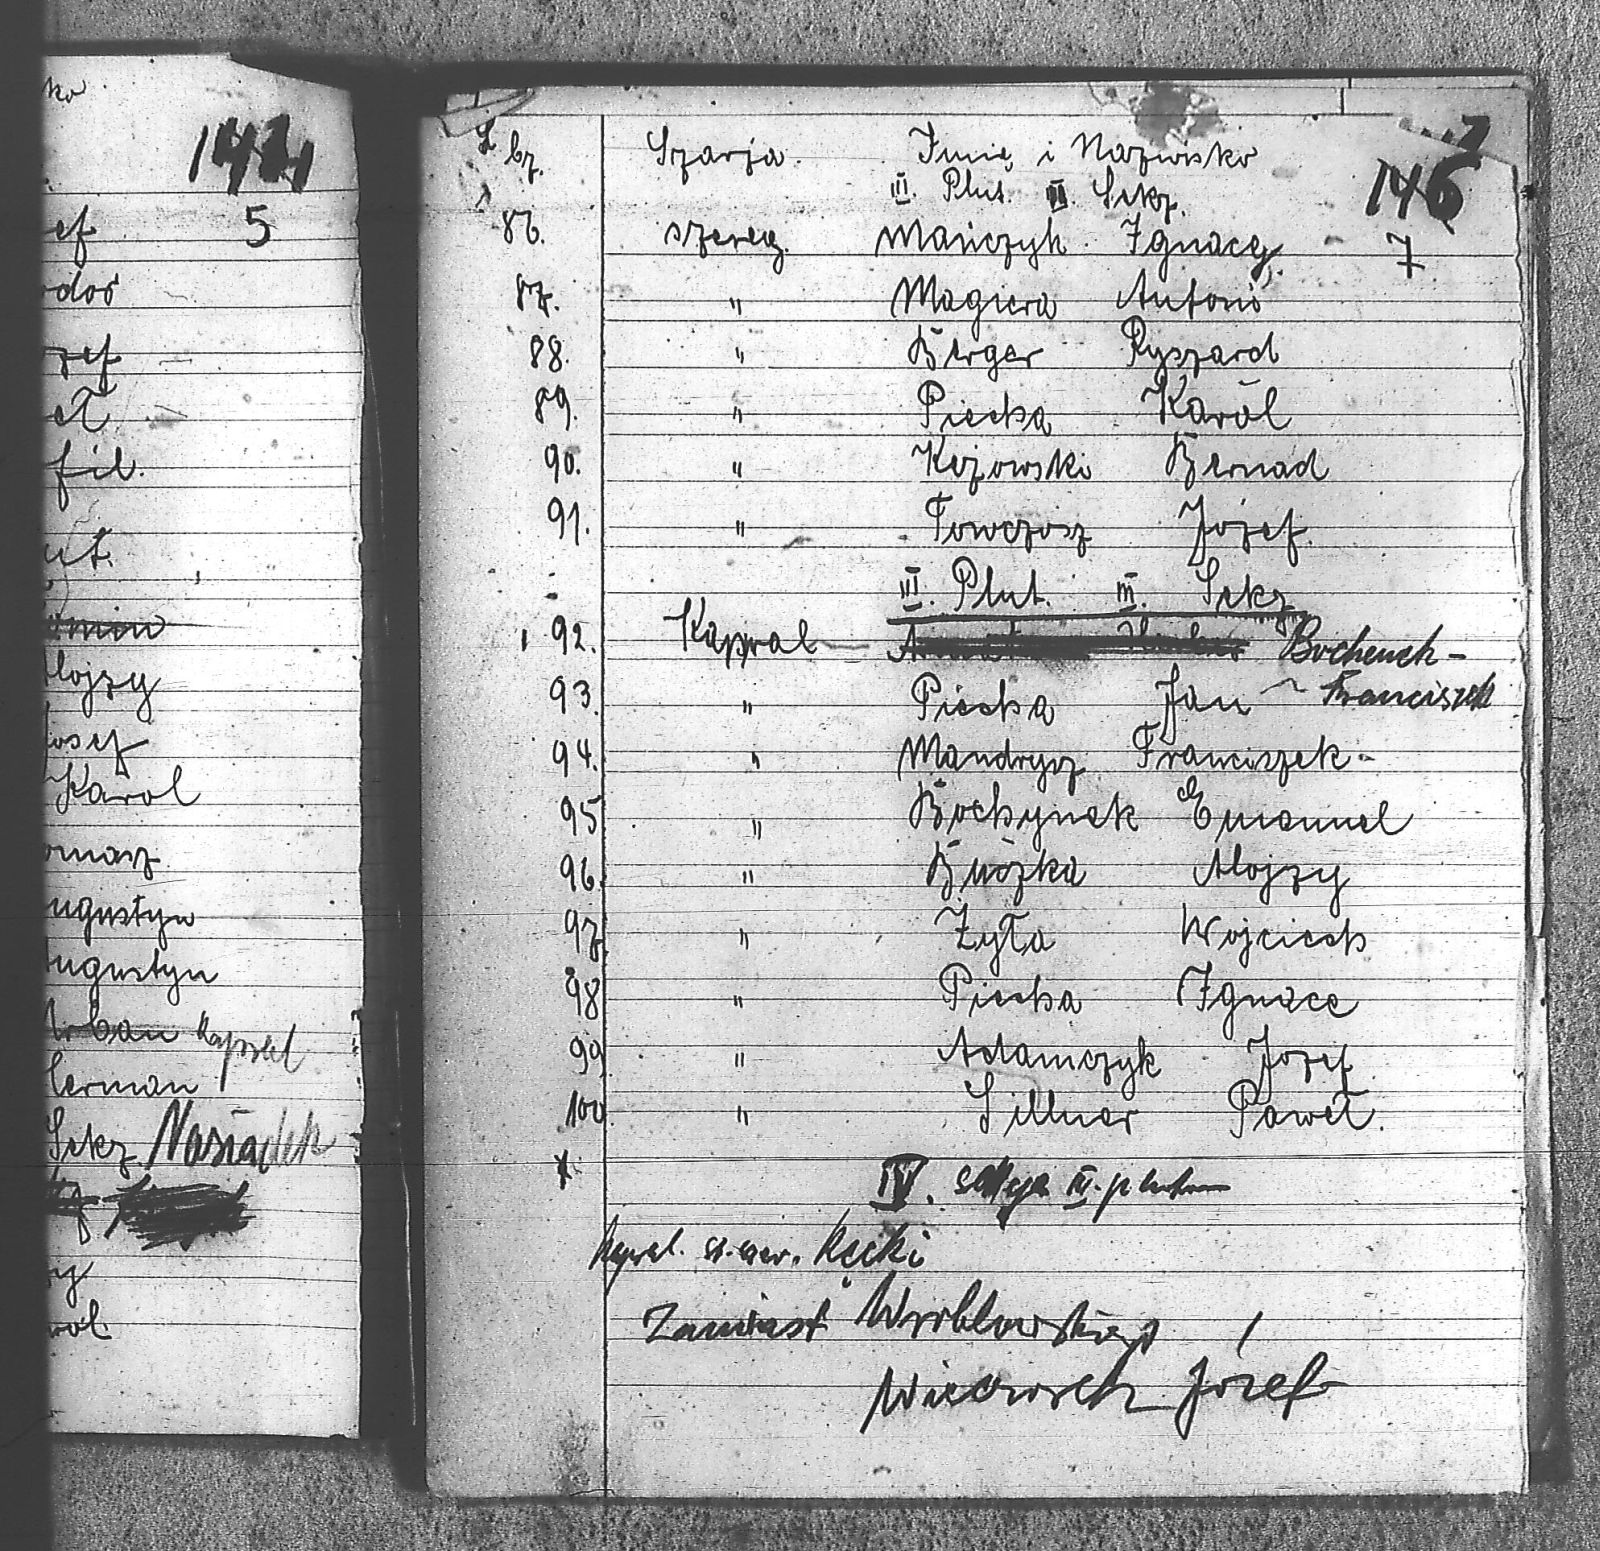 142
5
ef
dor
zef
fil.
ut.
lojzy
osef
Karol
omasz
ugustyn
ugustyn
Urban Kapral
German
Sekz. Nasiadek
y
rol.
7
L. bz. Szarja. Imię i Nazwisko
146
III. Plut. II. Sekz.
7
86. szereg. Mańczyk Ignacy.
87. " Magiera Antoni
88. " Berger Ryszard
89. " Piecha Karol
90. " Kozowski Bernad
91. " Towczosz Józef.
III. Plut. III. Sekz
92. Kapral Bochenek -
Franciszek
93. " Piecha Jan
94. " Mandrysz Franciszek -
95 " Bochynek Emanuel
96. " Buszka Alojzy
97. " Żyła Wojciech
98 " Piecha Ignace
99. " Adamczyk Jozef
100 " Sillner Paweł.
IV. sekcja III. pluton
Kapral. Kącki
Zamiast Wróblewskiego
Wieczorek Józef